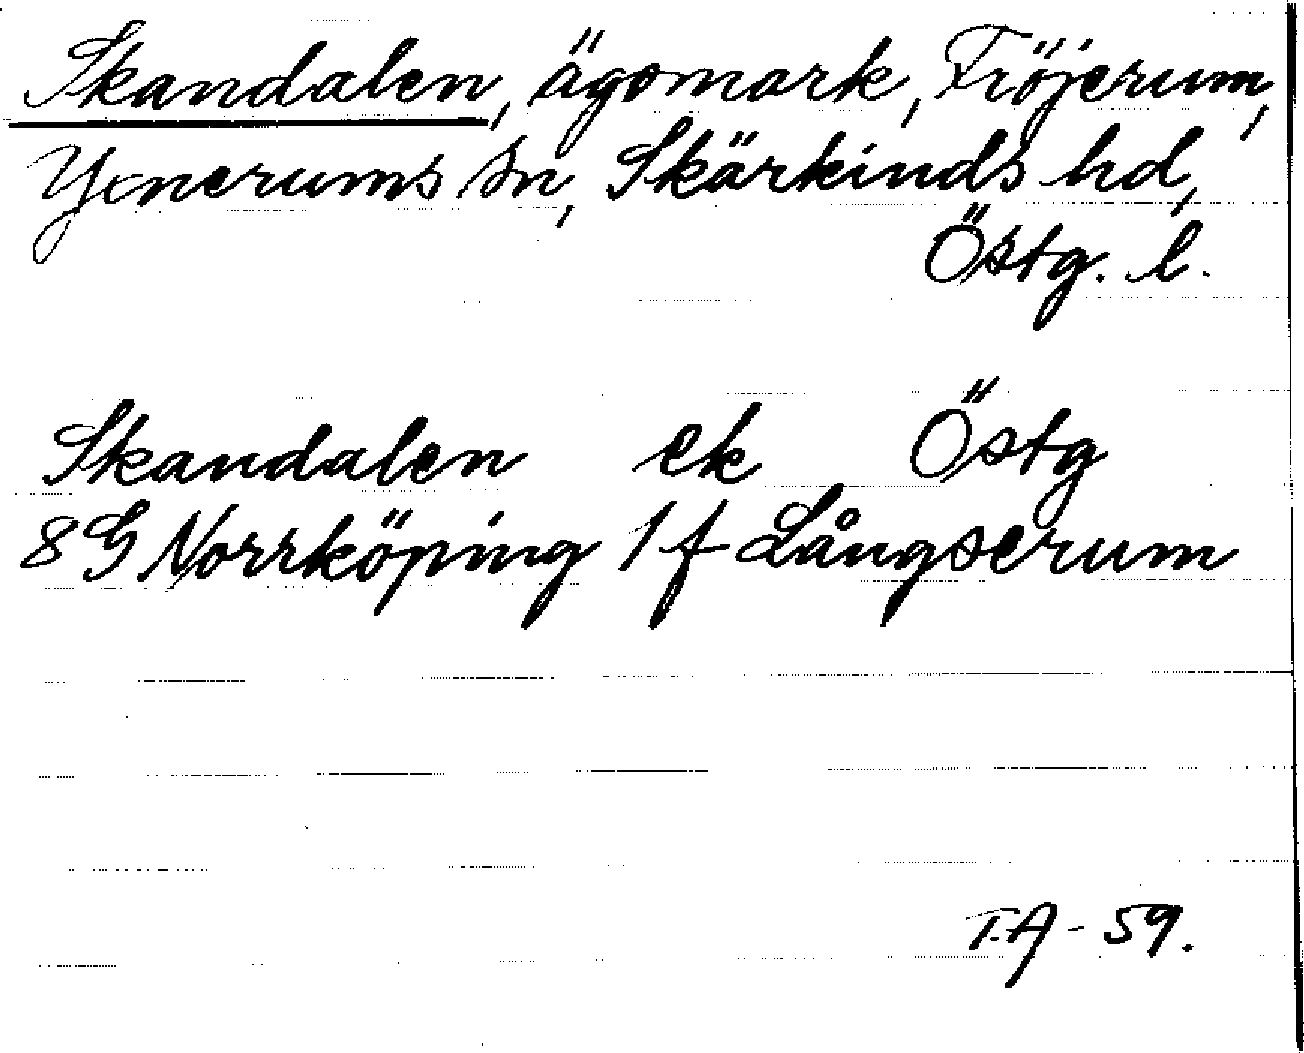 Skandalen, ägomark, Fröjerum,
Yxnerums sn, Skärkinds hd,
Östg. l.
Skandalen ek Östg
8G Norrköping 1 f Långserum
T.A - 59.